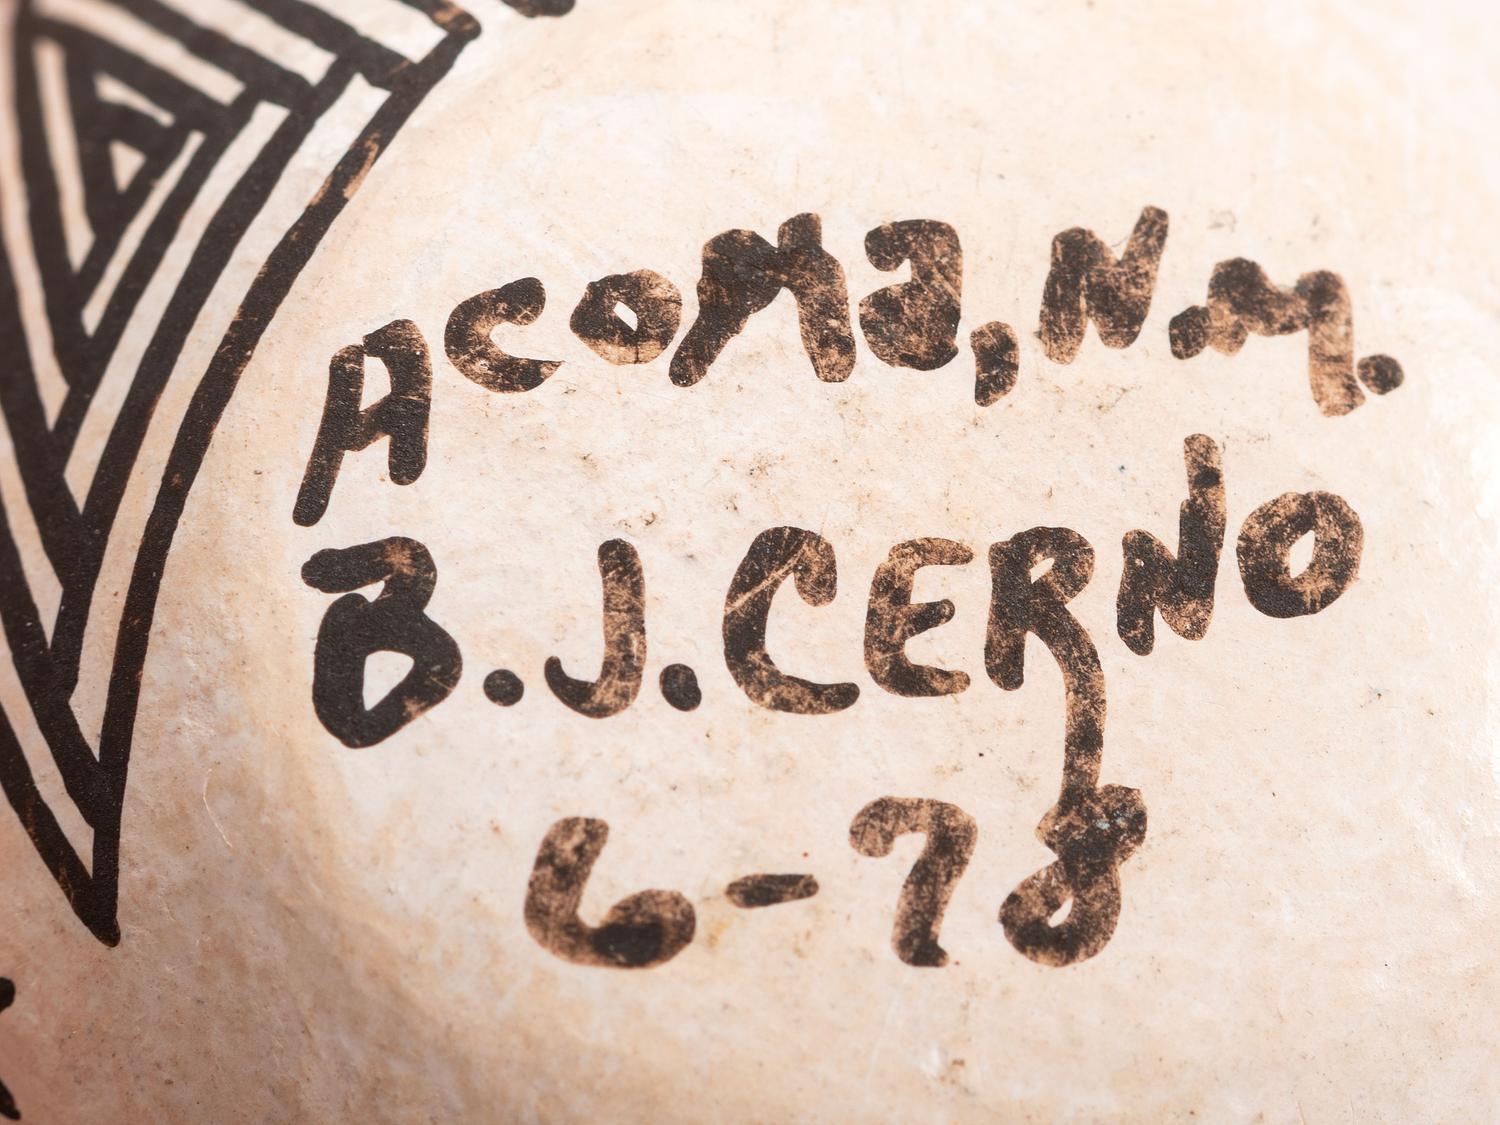 AcoMa, N.m.
B.J.CERNO
6-78